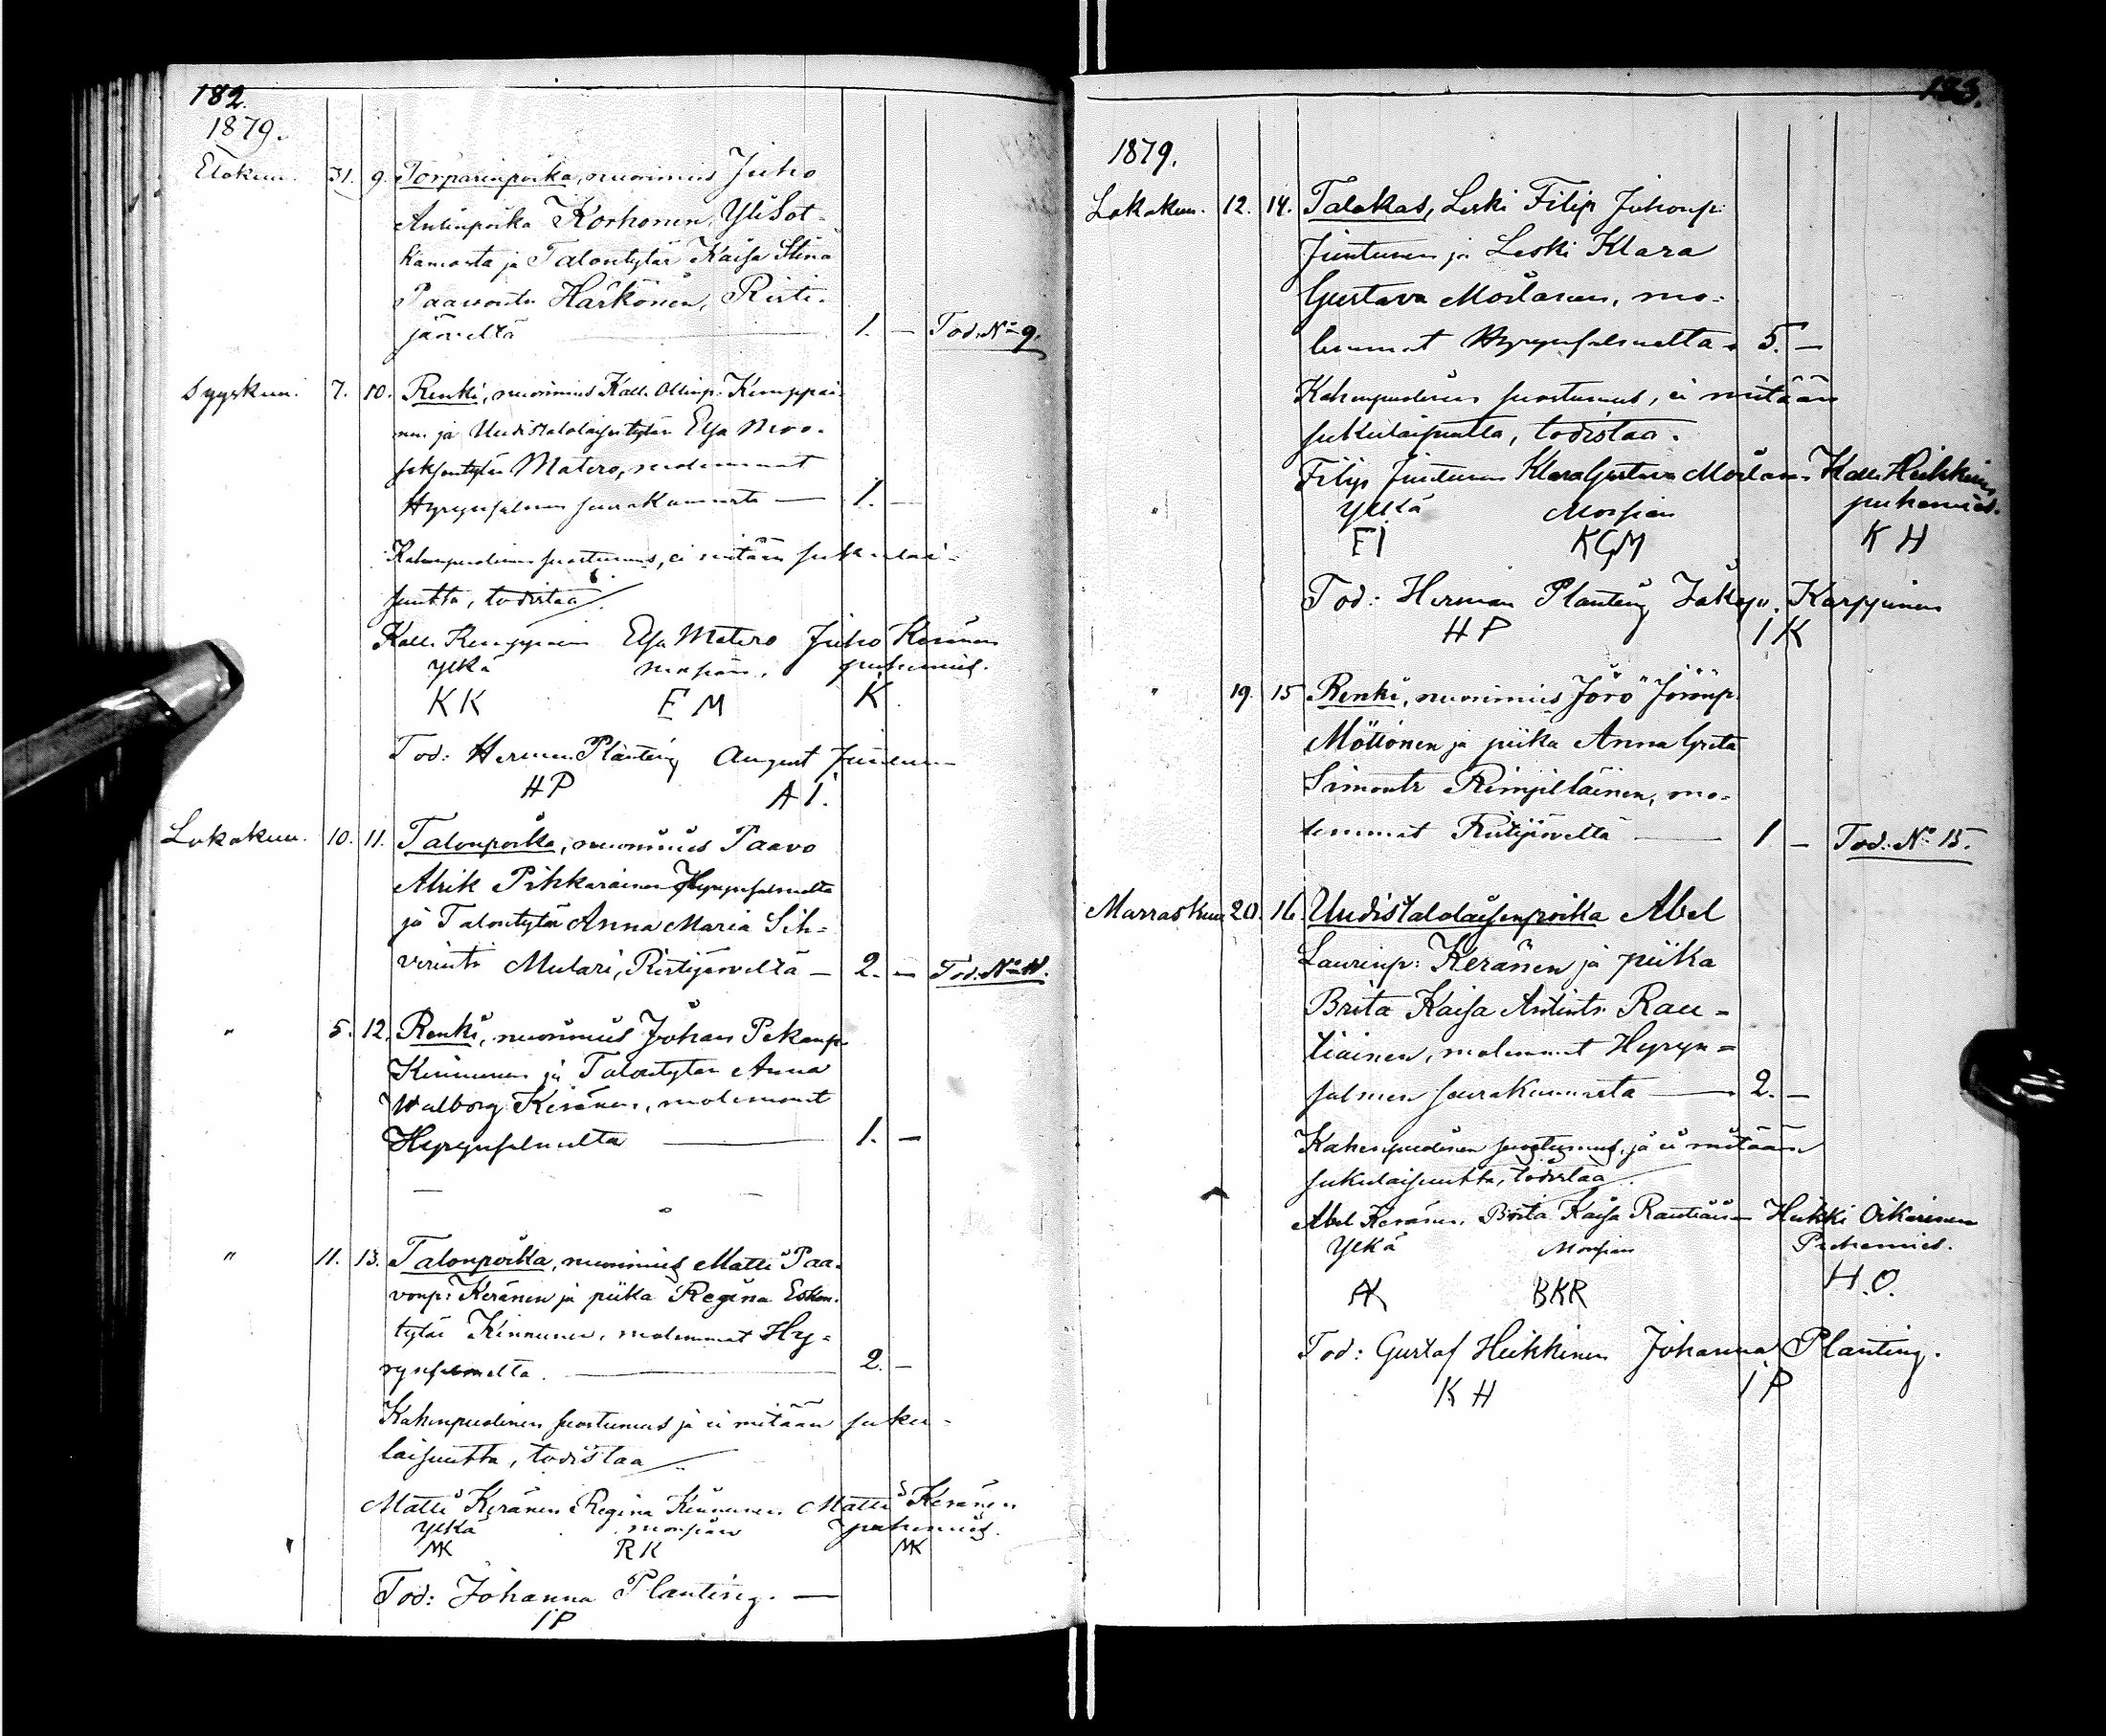 182.
1879.
Elokuu. 31. 9. Torparinpoika, nuorimies Juho
Antinpoika Korhonen, YliSot-
kamosta ja Talontytär Kaisa Stina
Paavontr Härkönen, Risti-
järveltä 1. — Tod. No 9.
Syyskuu. 7. 10. Renki, nuorimies Kalle Ollinp. Kemppai-
nen ja Uudistalolaisen tytär Elsa
Matero, molemmat
Hyrynsalmen seurakunnasta — 1. —
Kahenpuolinen suostumus, ei mitään sukulai-
suutta, todistaa.
Kalle Kemppainen Elsa Matero Juho Keränen
Ylkä morsian. puhemies.
KK EM K
Tod: Herman Planting August Juntunen
HP AI.
Lokakuu. 10. 11. Talonpoika, nuorimies Paavo
Alrik Pikkarainen Hyrynsalmelta
ja Talontytär Anna Maria Sih-
verintr Mulari, Ristijärveltä — 2. — Tod. No 11.
" 5. 12. Renki, nuorimies Johan Pekanp.
Kinnunen ja Talontytär Anna
Walborg Keränen, molemmat
Hyrynsalmelta 1. —
" 11. 13. Talonpoika, nuorimies Matti Paa-
vonp: Keränen ja piika Regina Eskon-
tytär Kinnunen, molemmat Hy-
rynsalmelta. 2. —
Kahenpuolinen suostumus ja ei mitään suku-
laisuutta, todistaa
Matti Keränen Regina Kinnunen Matti Keränen
Ylkä morsian puhemies.
MK RK MK
Tod: Johanna Planting. —
IP
183.
1879.
Lokakuu. 12. 14. Talokas, Leski Filip Juhonp:
Juntunen ja Leski Klara
Gustava Moilanen, mo-
lemmat Hyrynsalmelta 5. —
Kahenpuolinen suostumus, ei mitään
sukulaisuutta, todistaa.
Filip Juntunen Klara Gustava Moilanen Kalle Heikkinen
Ylkä Morsian puhemies.
FI KGM KH
Tod: Herman Planting Karppinen
HP IK
" 19. 15 Renki, nuorimies Jörö Jörönp.
Möttönen ja piika Anna Greta
Simontr Rimpiläinen, mo-
lemmat Ristijärveltä 1 — Tod. No 15.
Marraskuu 20. 16. Uudistalolaisenpoika Abel
Laurinp: Keränen ja piika
Brita Kaisa Antintr. Rau-
tiainen, molemmat Hyryn-
salmen seurakunnasta 2. —
Kahenpuolinen suostumus, ja ei mitään
sukulaisuutta, todistaa
Abel Keränen. Brita Kaisa Rautiainen Heikki Oikarinen
Ylkä Morsian Puhemies.
AK BKR H.O.
Tod: Gustaf Heikkinen Johanna Planting.
KH IP